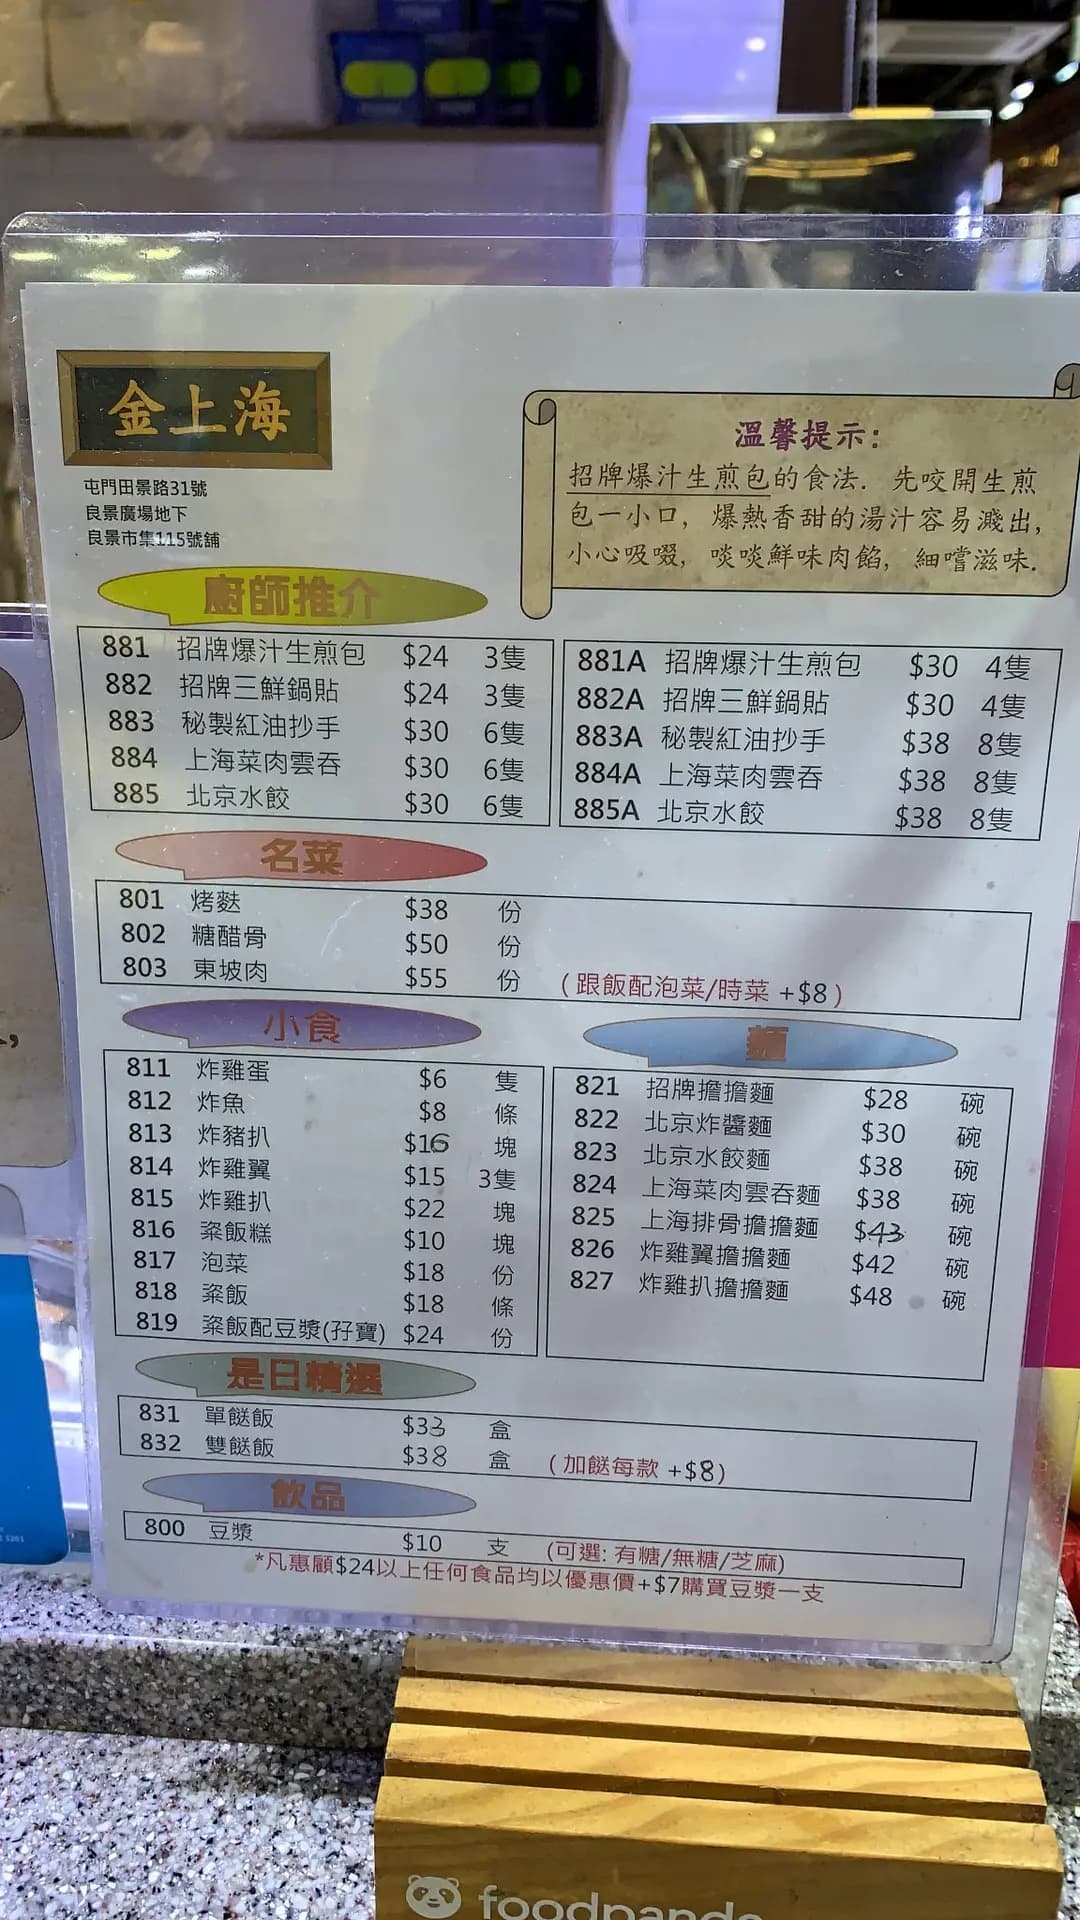 金上海
屯門田景路31號
良景廣場地下
良景市集115號舖
溫馨提示:
招牌爆汁生煎包的食法. 先咬開生煎
包一小口, 爆熱香甜的湯汁容易濺出,
小心吸啜, 啖啖鮮味肉餡, 細嚐滋味.
廚師推介
881 招牌爆汁生煎包 $24 3隻
882 招牌三鮮鍋貼 $24 3隻
883 秘製紅油抄手 $30 6隻
884 上海菜肉雲吞 $30 6隻
885 北京水餃 $30 6隻
881A 招牌爆汁生煎包 $30 4隻
882A 招牌三鮮鍋貼 $30 4隻
883A 秘製紅油抄手 $38 8隻
884A 上海菜肉雲吞 $38 8隻
885A 北京水餃 $38 8隻
名菜
801 烤麩 $38 份
802 糖醋骨 $50 份
803 東坡肉 $55 份 (跟飯配泡菜/時菜 +$8)
小食
811 炸雞蛋 $6 隻
812 炸魚 $8 條
813 炸豬扒 $16 塊
814 炸雞翼 $15 3隻
815 炸雞扒 $22 塊
816 粢飯糕 $10 塊
817 泡菜 $18 份
818 粢飯 $18 條
819 粢飯配豆漿(孖寶) $24 份
麵
821 招牌擔擔麵 $28 碗
822 北京炸醬麵 $30 碗
823 北京水餃麵 $38 碗
824 上海菜肉雲吞麵 $38 碗
825 上海排骨擔擔麵 $43 碗
826 炸雞翼擔擔麵 $42 碗
827 炸雞扒擔擔麵 $48 碗
是日精選
831 單餸飯 $33 盒
832 雙餸飯 $38 盒 (加餸每款 +$8)
飲品
800 豆漿 $10 支 (可選: 有糖/無糖/芝麻)
*凡惠顧$24以上任何食品均以優惠價+$7購買豆漿一支
foodpanda